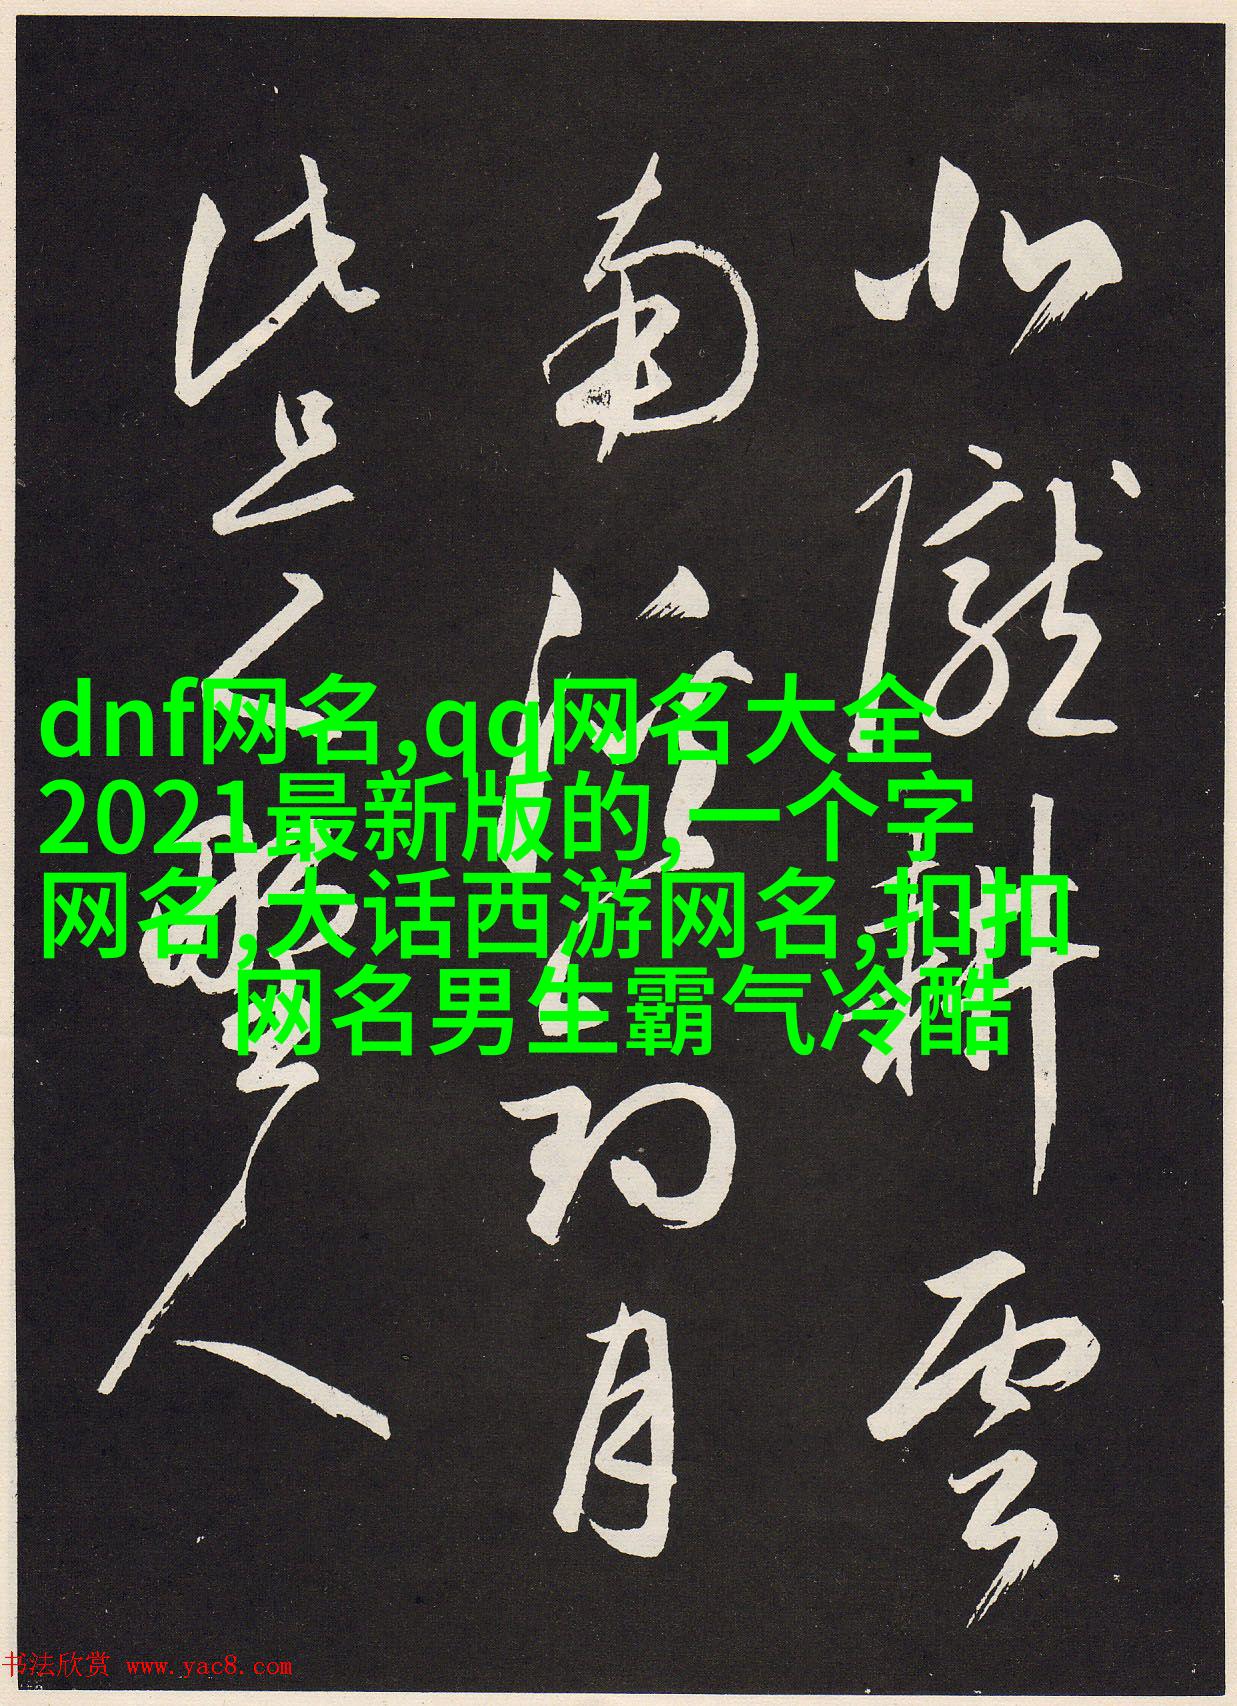 北隴耕雲
南溪釣月
此是野人
dnf网名,qq网名大全
2021最新版的,一个字
网名,大话西游网名,扣扣
网名男生霸气冷酷
书法欣赏 www.yac8.com